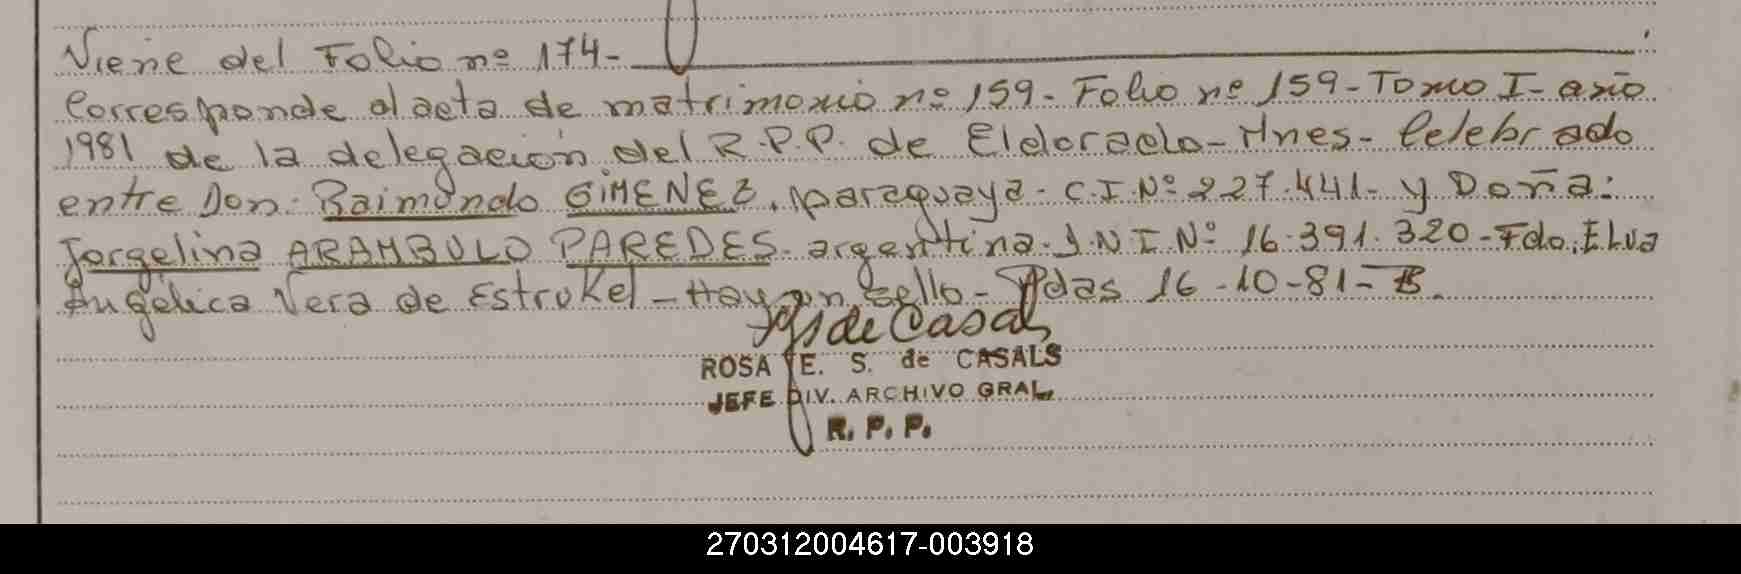 Viene del Folio nº 174-
Corresponde al acta de matrimonio nº 159- Folio nº 159-Tomo I-año
1981 de la delegación del R.P.P. de Eldorado-Mnes- Celebrado
entre Don: Raimundo GIMENEZ, paraguaya- C.I.Nº 227.441- y Doña:
Jorgelina ARAMBULO PAREDES- argentina- D.N.I Nº 16.391.320-Fdo. Elva
Angélica Vera de Estrukel-Hay un sello- Pdas 16-10-81-
de Casals
ROSA E. S. de CASALS
JEFE DIV. ARCHIVO GRAL.
R. P. P.
270312004617-003918